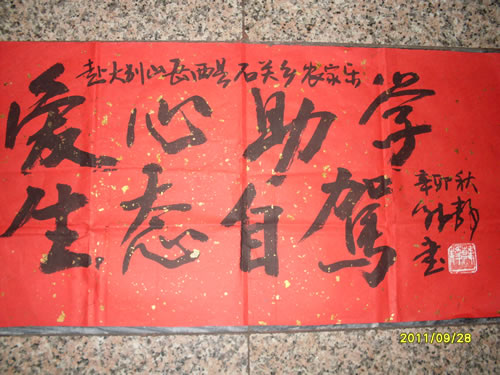 赴大别山岳西县石关乡农家乐
爱心助学
生态自驾
辛卯秋
书
2011/09/28